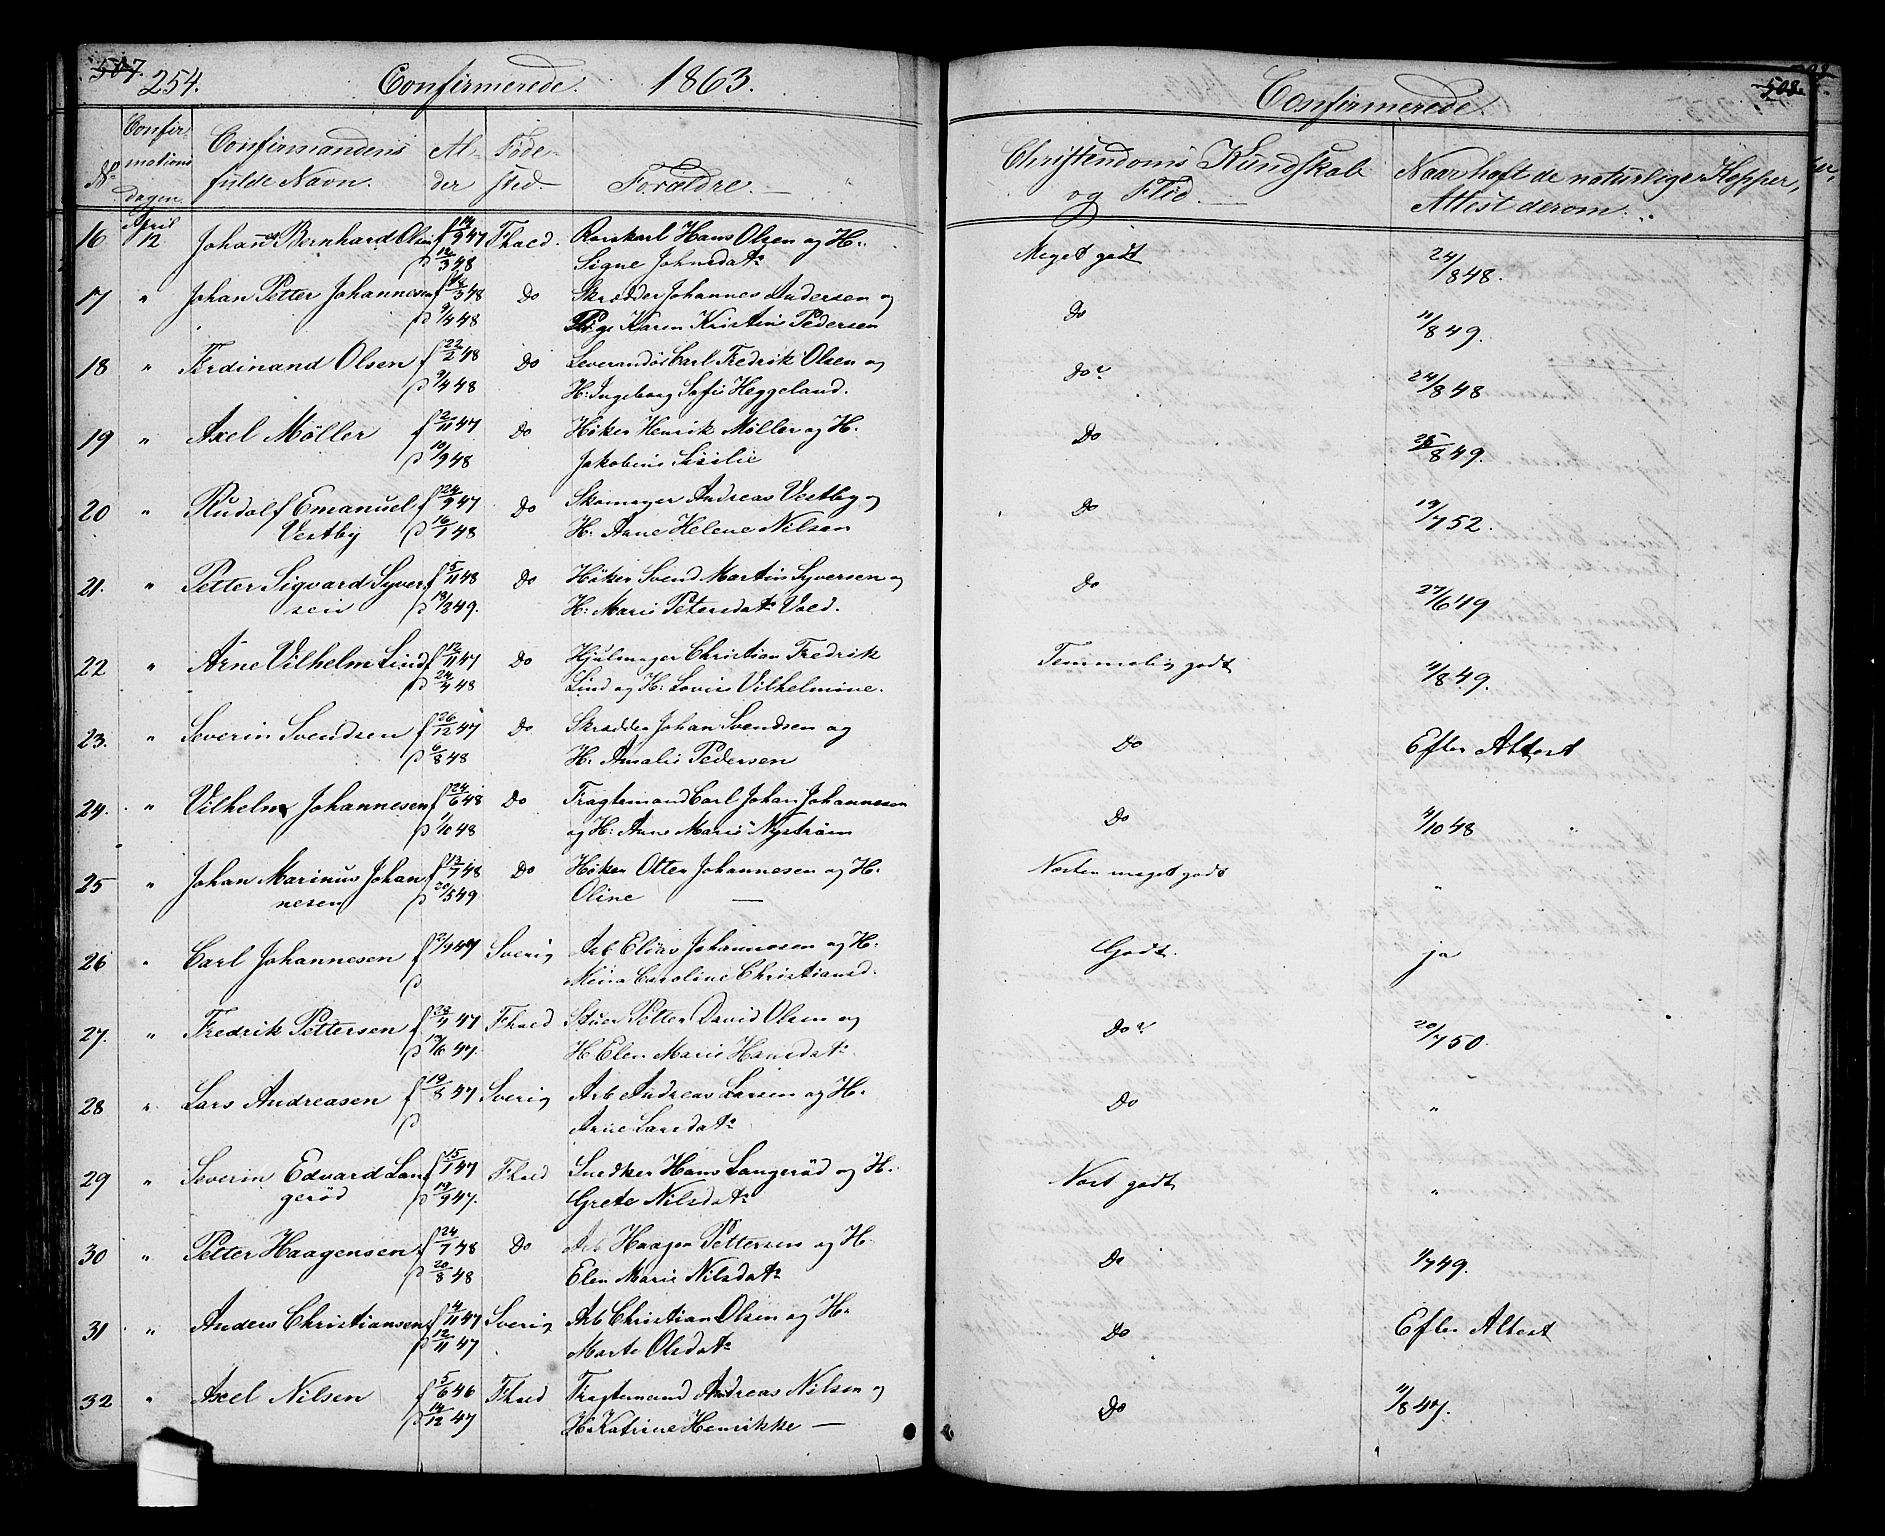 507. 254. Confirmerede. 1863.
No Confirmations Dagen Confirmandens fulde Navn. Alder Fødested Forældre.
16 April 12 Johannes Bernhard Olsen f 9 47 Fhald. Hans Olsen og H:
p 12/3 48 Signe Johnsdatr
17 " Johan Petter Johannesen f 3 48 Do Skrædder Johannes Andersen og
p 9/4 48 Pige Karen Kristine Pedersen
18 " Ferdinand Olsen f 22/2 48 Do Leverandør Carl Fredrik Olsen og
p 9/4 48 H: Ingeborg Sofie Heggeland.
19 " Axel Möller f 2/11 47 Do Høker Henrik Møller og H.
p 10/9 48 Jakobine Sisilie
20 " Rudolf Emanuel f 24/9 47 Do Skomager Andreas Vestby og
Vestby p 16/1 48 H: Anne Helene Nilsen
21. " Petter Sigvard Syver f 5/11 48 Do Høker Svend Martin Syversen og
sen p 18/2 49. H: Marie Petersdatr Vold.
22 " Arne Vilhelm Lind f 12/11 47 Do Hjulmager Christian Fredrik
p 24/4 48 Lind og H: Lovise Vilhelmine.
23. " Severin Svendsen f 26/12 47 Do Skrædder Johan Svendsen og
p 6/8 48 H: Amalie Pedersen
24. " Vilhelm Johannesen f 24/6 48 Do Fragtemand Carl Johan Johannesen
p 1/10 48 og H: Anne Marie Nyström
25 " Johan Marinus Johan f 13/7 48 Do Høker Otter Johannesen og H.
nesen p 20/5 49 Oline —
26 " Carl Johannesen f 47 Sverig Arb Elias Johannesen og H:
p Mina Caroline Christiansd.
27. " Fredrik Pettersen f 47 Fhald Stuer Petter David Olsen og
p 13/6 47. H Elen Marie Hansdatr
28 " Lars Andreasen f 19/8 47 Sverig Arb Andreas Larsen og H.
p Anne Larsdatr
29 " Severin Edvard Lan f 15/1 47 Fhald Snedker Hans Langeröd og H.
geröd p 19/9 47. Grete Nilsdatr
30 " Petter Haagensen f 24/7 48 Do Arb Haagen Pettersen og H.
p 20/8 48 Elen Marie Nilsdatr
31 " Anders Christiansen f 4/11 47 Sverig Arb Christian Olsen og H.
p 12/11 47 Marte Olsdatr
32 " Axel Nilsen f 5/6 46 Fhald Fragtemand Andreas Nilsen og
p 14/12 47 H. Katrine Henrikke —
Confirmerede. 508
Christendoms Kundskab og Flid. Naar haft de naturlige Kopper, Attest derom.
Meget godt 24/8 48.
Do 11/8 49.
Do 24/8 48
Do 25/8 49.
Do 13/7 52.
Do 27/6 49
Temmelig godt 11/8 49.
Do Efter Attest
Do 4/10 48
Næsten meget godt "
Godt. ja
Do 20/7 50.
Do "
Næst godt "
Do 1/7 49.
Do Efter Attest
Do 11/8 47.